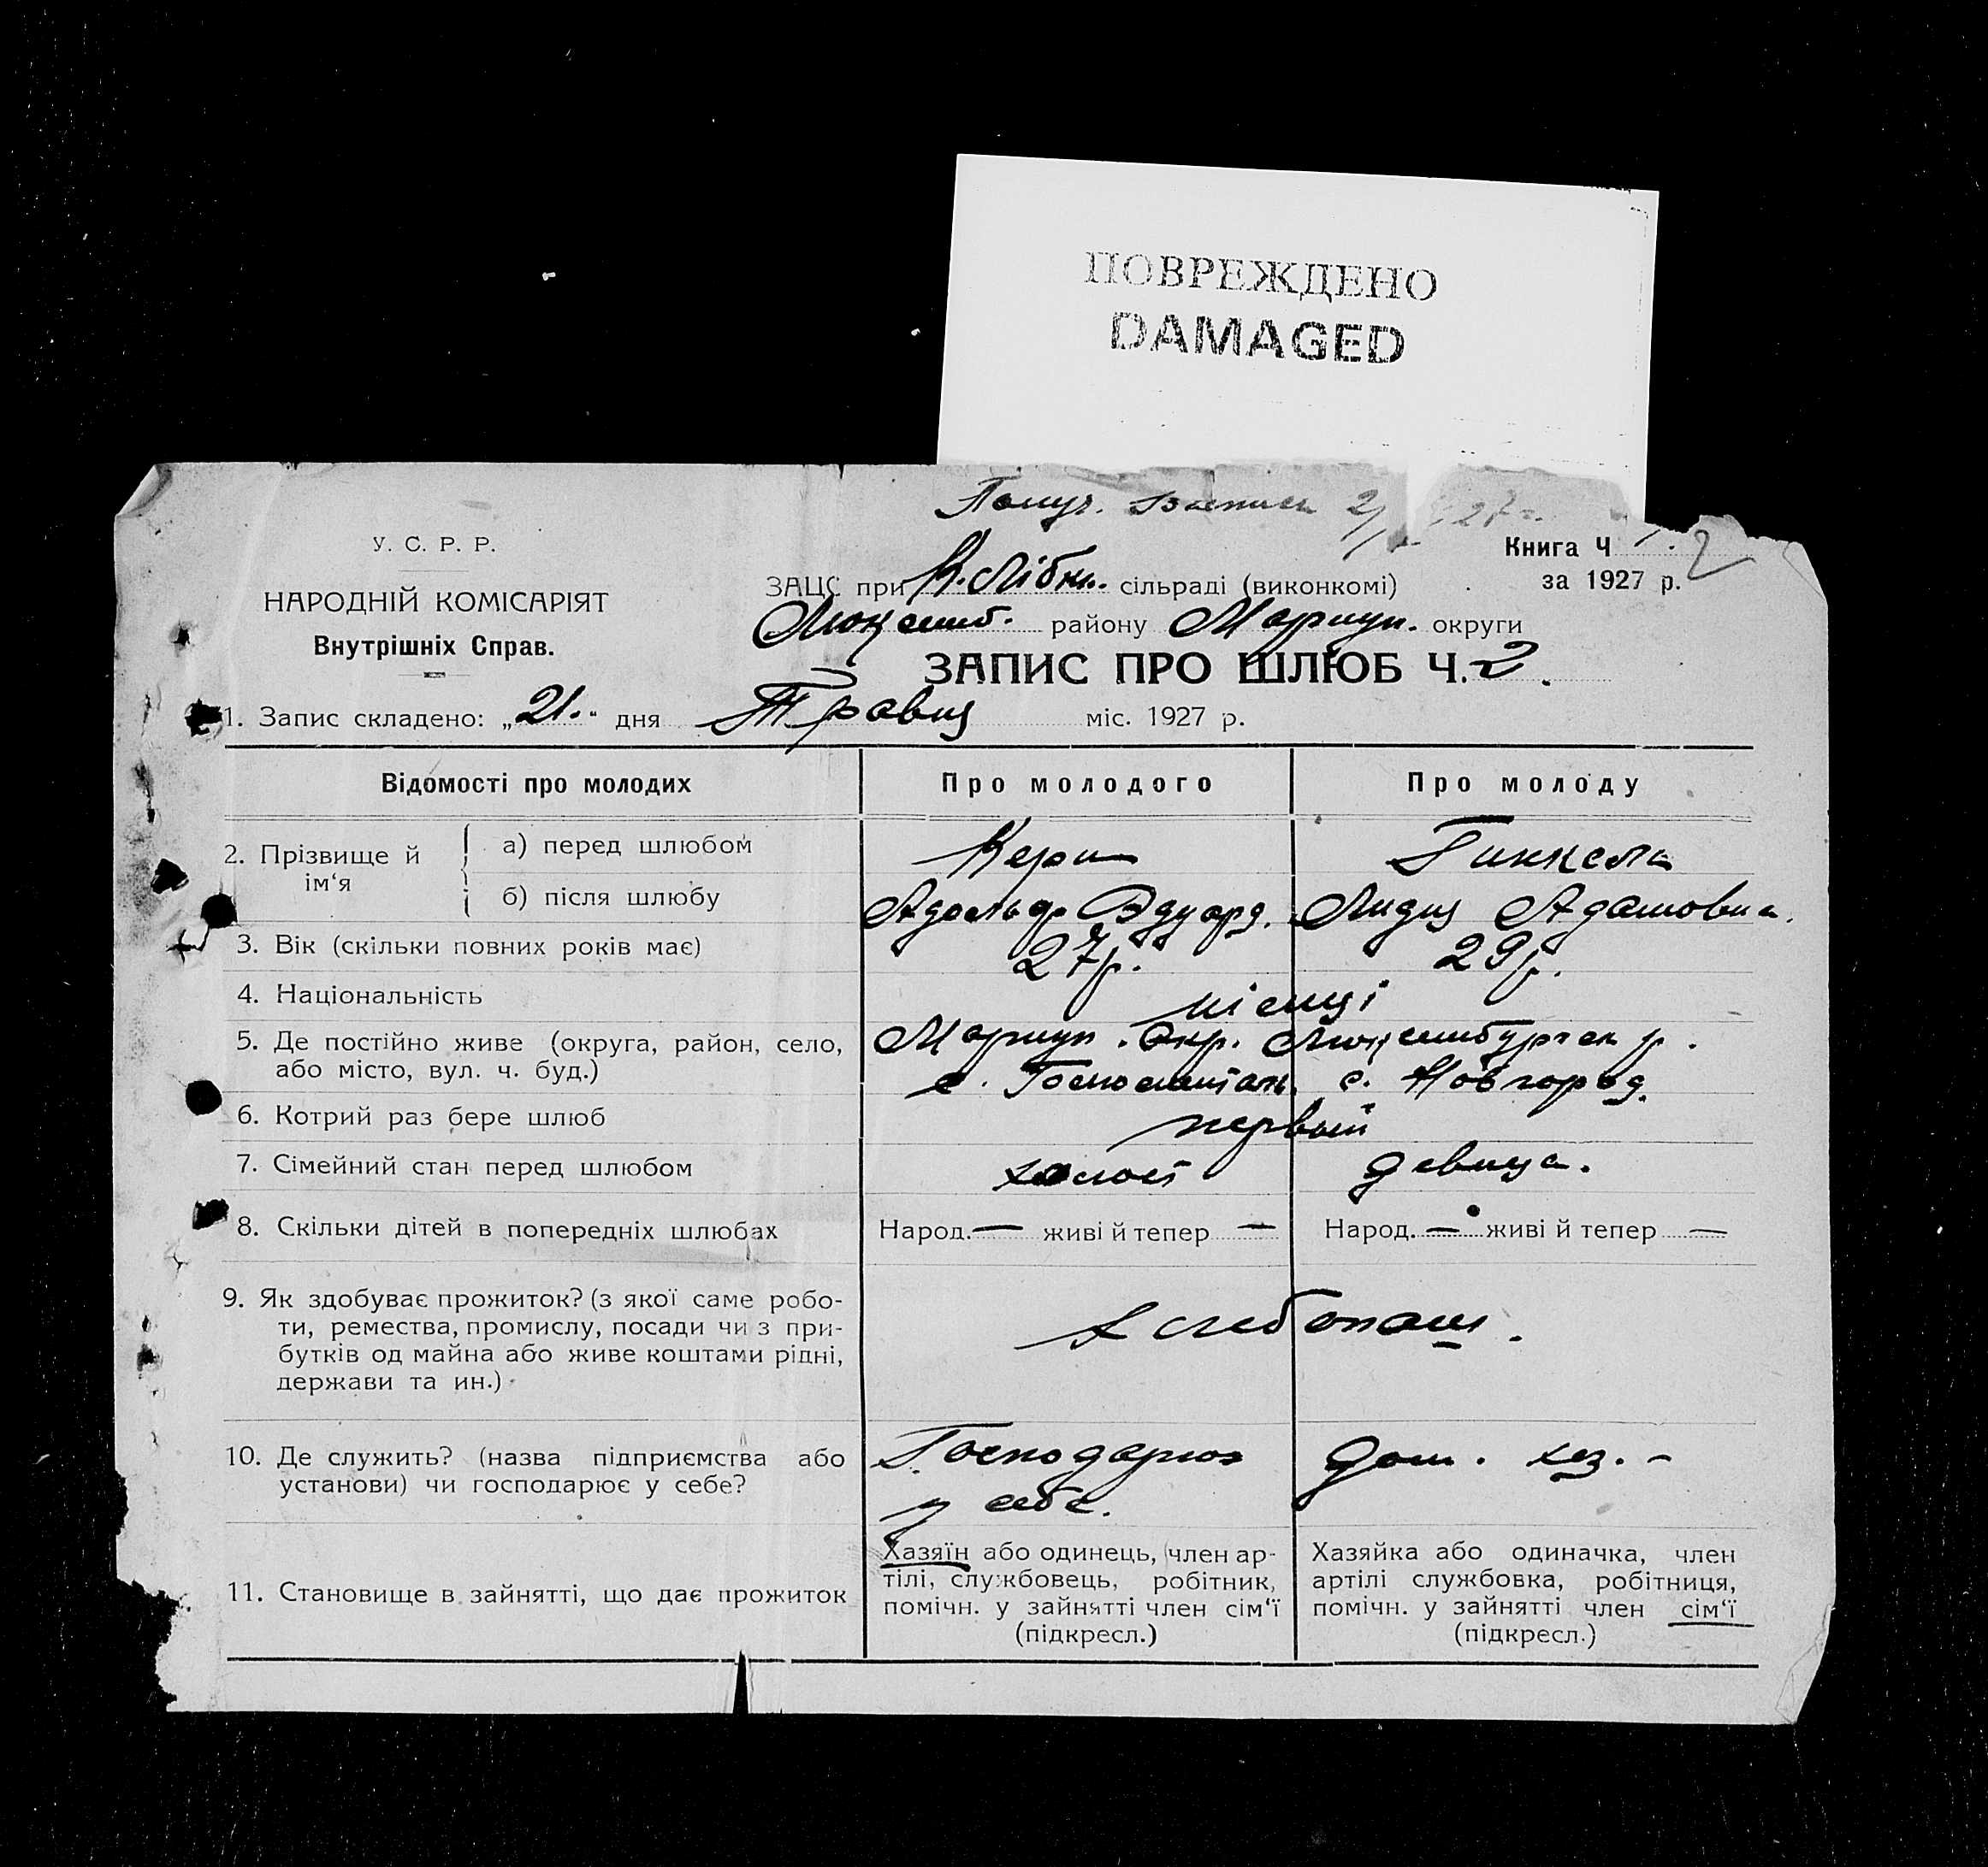 ПОВРЕЖДЕНО
DAMAGED
Получ. 2/ 27 г.
У. С. Р. Р.
НАРОДНІЙ КОМІСАРІЯТ
Внутрішніх Справ.
Книга Ч 1. 2
за 1927 р.
ЗАЦС при К. Лібкн. сільраді (виконкомі)
Люксемб. району Мариуп. округи
ЗАПИС ПРО ШЛЮБ Ч. 2.
1. Запис складено: „21.“ дня Травня міс. 1927 р.
Відомості про молодих Про молодого Про молоду
2. Прізвище й ім‘я
а) перед шлюбом Керн Гинкель
б) після шлюбу Адольф Эдуард. Лидия Адамовна.
3. Вік (скільки повних років має) 27 р. 29 р.
4. Національність німці
5. Де постійно живе (округа, район, село, Мариуп. Окр. Люксембургск р.
або місто, вул. ч. буд.) с. с. Новгород.
6. Котрий раз бере шлюб первый
7. Сімейний стан перед шлюбом холост девица.
8. Скільки дітей в попередніх шлюбах Народ. — живі й тепер — Народ. — живі й тепер —
9. Як здобуває прожиток? (з якої саме робо-
ти, ремества, промислу, посади чи з при- хлебопаш.
бутків од майна або живе коштами рідні,
держави та ин.)
10. Де служить? (назва підприємства або Господарює дом. хоз. -
установи) чи господарює у себе? у себе.
11. Становище в зайнятті, що дає прожиток
Хазяїн або одинець, член ар-
тілі, службовець, робітник,
помічн. у зайнятті член сім‘ї
(підкресл.)
Хазяйка або одиначка, член
артілі службовка, робітниця,
помічн. у зайнятті член сім‘ї
(підкресл.)